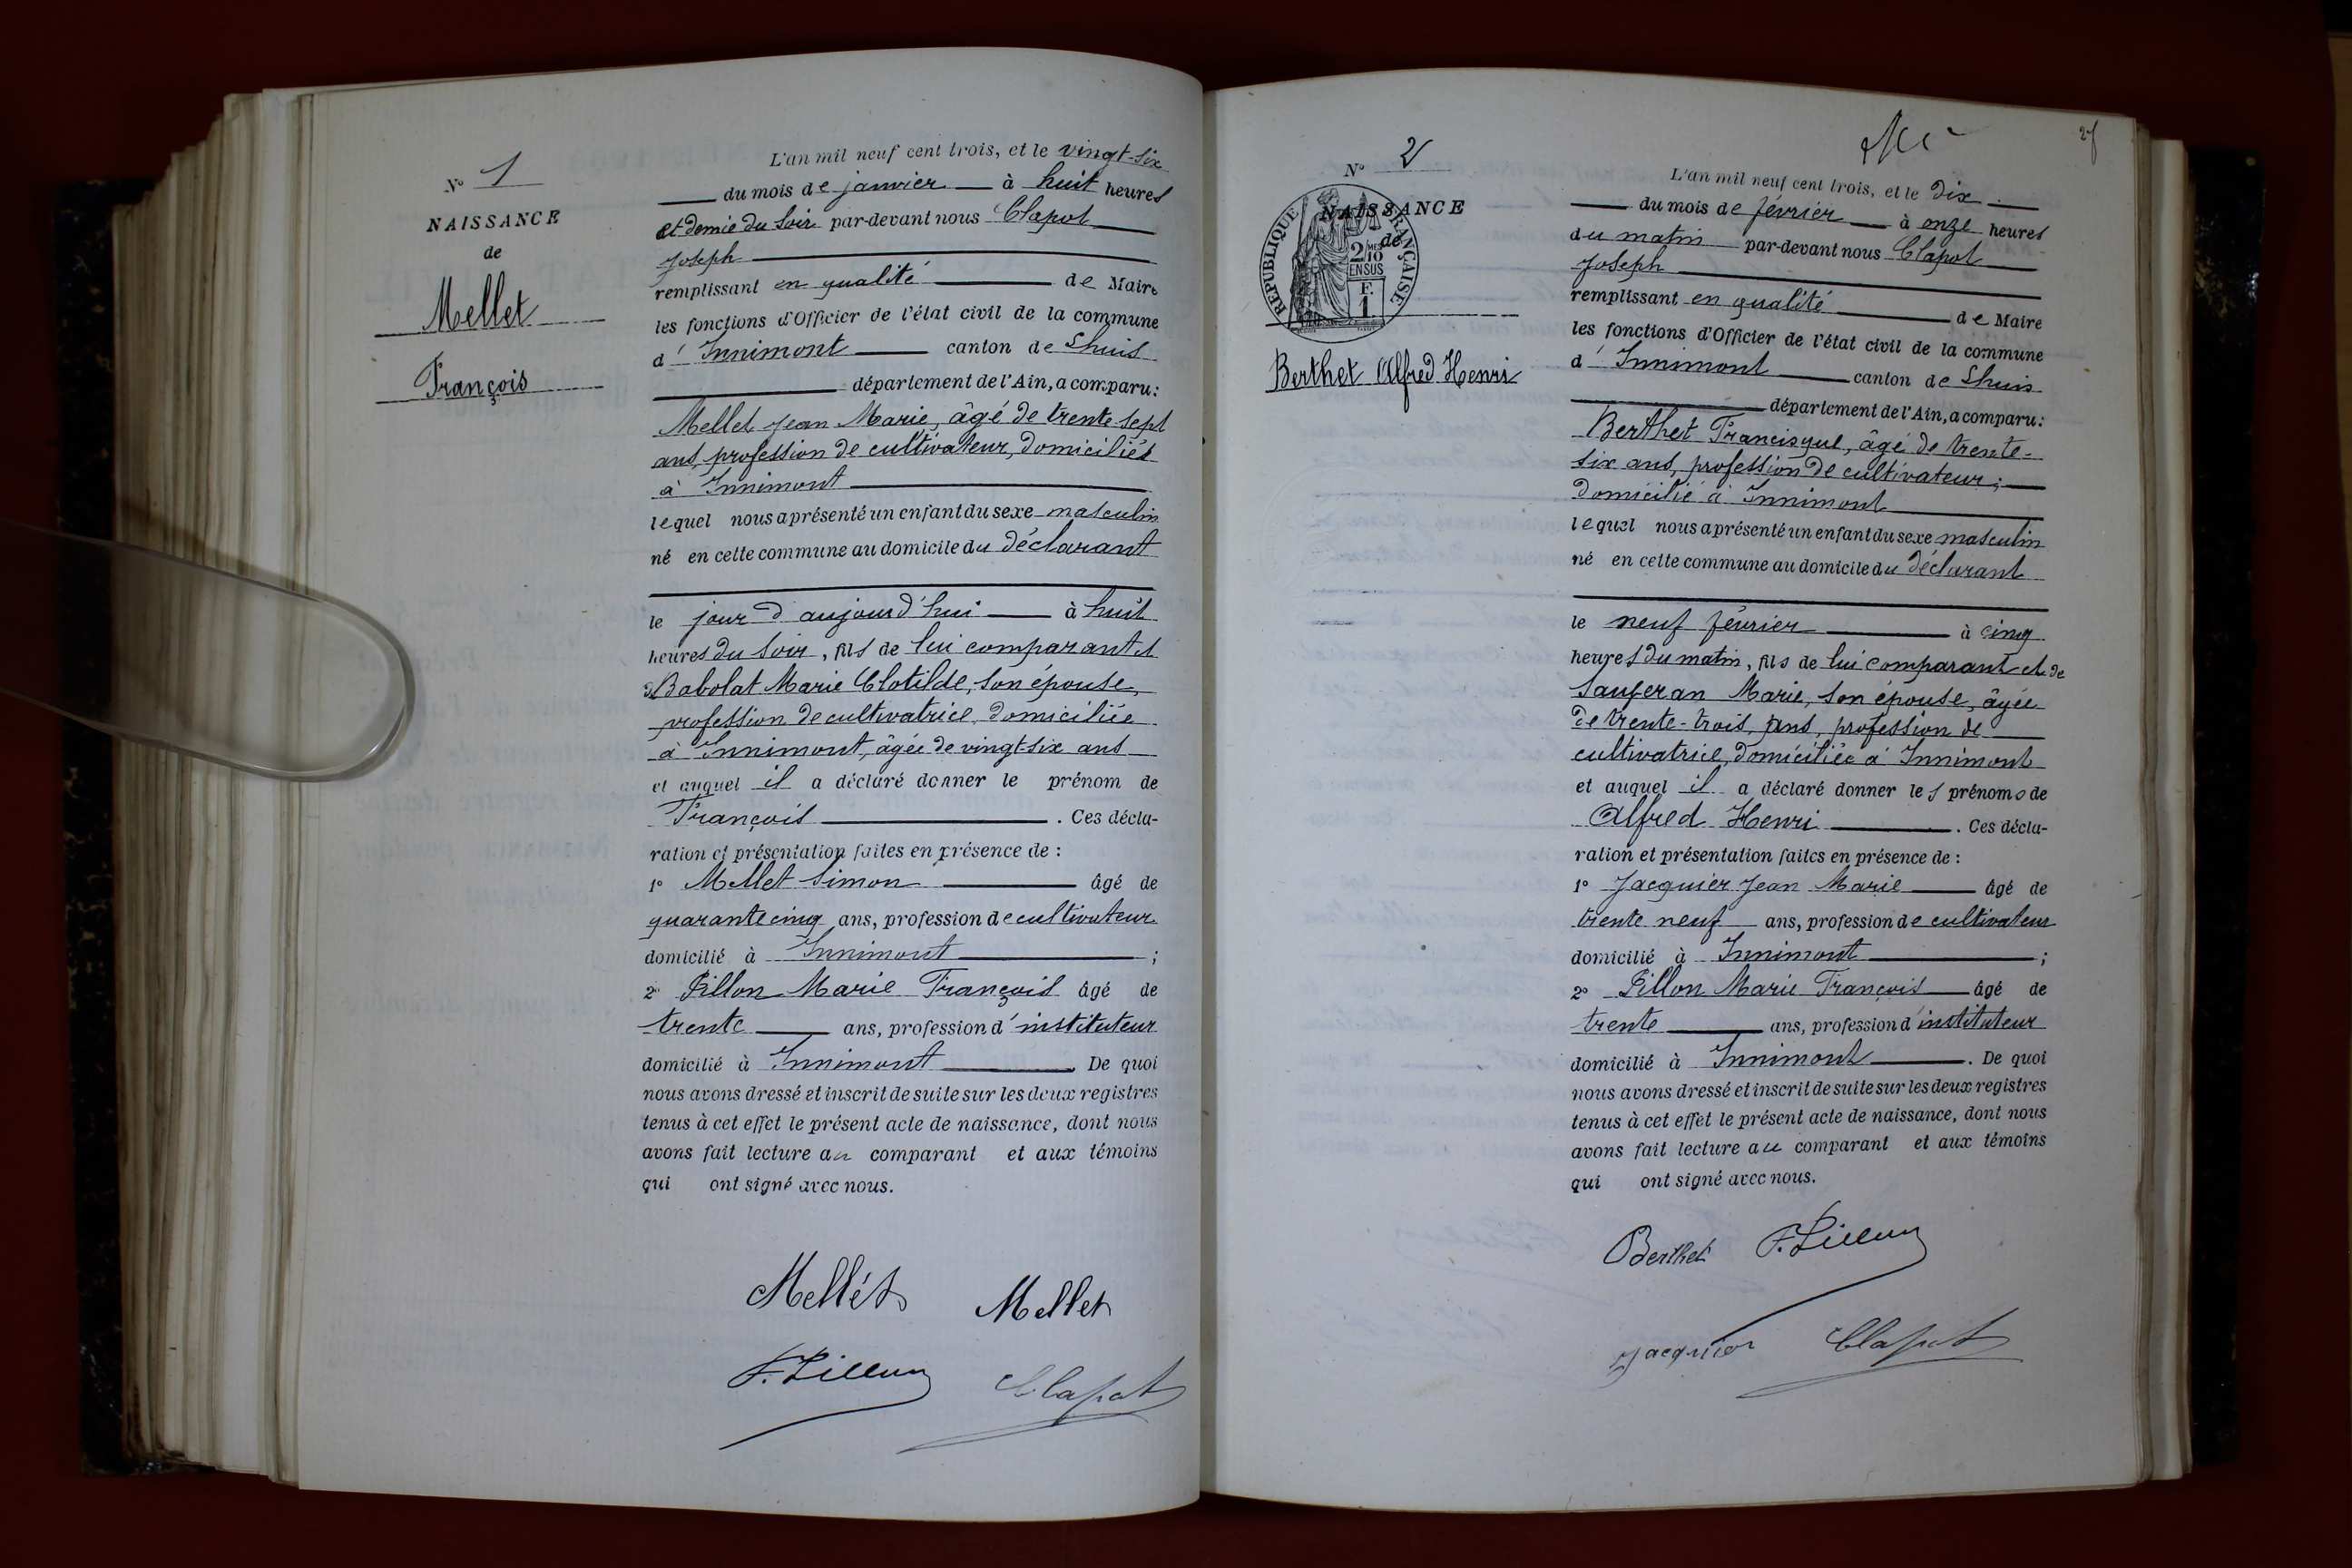 N° 1
NAISSANCE
de
Mellet
François
L'an mil neuf cent trois, et le vingt-six
du mois de janvier à huit heures
et demie du soir par-devant nous Clapot
Joseph
remplissant en qualité de Maire
les fonctions d'Officier de l'état civil de la commune
d'Innimont canton de Lhuis
département de l'Ain, a comparu :
Mellet Jean Marie, âgé de trente sept
ans, profession de cultivateur, domiciliés
à Innimont
lequel nous a présenté un enfant du sexe masculin
né en cette commune au domicile du déclarant
le jour d'aujourd'hui à huit
heures du soir, fils de lui comparant et
de Babolat Marie Clotilde, son épouse,
profession de cultivatrice, domiciliée
à Innimont, âgée de vingt-six ans
et auquel il a déclaré donner le prénom de
François. Ces décla-
ration et présentation faites en présence de :
1° Mellet Simon âgé de
quarante cinq ans, profession de cultivateur
domicilié à Innimont ;
2° Pillon Marie François âgé de
trente ans, profession d'instituteur
domicilié à Innimont. De quoi
nous avons dressé et inscrit de suite sur les deux registres
tenus à cet effet le présent acte de naissance, dont nous
avons fait lecture au comparant et aux témoins
qui ont signé avec nous.
Mellét Mellet
F. Pillon Clapot
N° 2
NAISSANCE
de
RÉPUBLIQUE FRANÇAISE
2/10 MES
EN SUS
F.
1
Berthet Alfred Henri
L'an mil neuf cent trois, et le dix
du mois de février à onze heures
du matin par-devant nous Clapot
Joseph
remplissant en qualité de Maire
les fonctions d'Officier de l'état civil de la commune
d'Innimont canton de Lhuis
département de l'Ain, a comparu :
Berthet Francisque, âgé de trente-
six ans, profession de cultivateur ;
domicilié à Innimont
lequel nous a présenté un enfant du sexe masculin
né en cette commune au domicile du déclarant
le neuf février à cinq
heures du matin, fils de lui comparant et de
Marie, son épouse, âgée
de trente-trois, ans, profession de
cultivatrice, domiciliée à Innimont
et auquel il a déclaré donner les prénoms de
Alfred Henri. Ces décla-
ration et présentation faites en présence de :
1° Jacquier Jean Marie âgé de
trente neuf ans, profession de cultivateur
domicilié à Innimont ;
2° Pillon Marie François âgé de
trente ans, profession d'instituteur
domicilié à Innimont. De quoi
nous avons dressé et inscrit de suite sur les deux registres
tenus à cet effet le présent acte de naissance, dont nous
avons fait lecture au comparant et aux témoins
qui ont signé avec nous.
Berthet F. Pillon
Jacquier Clapot